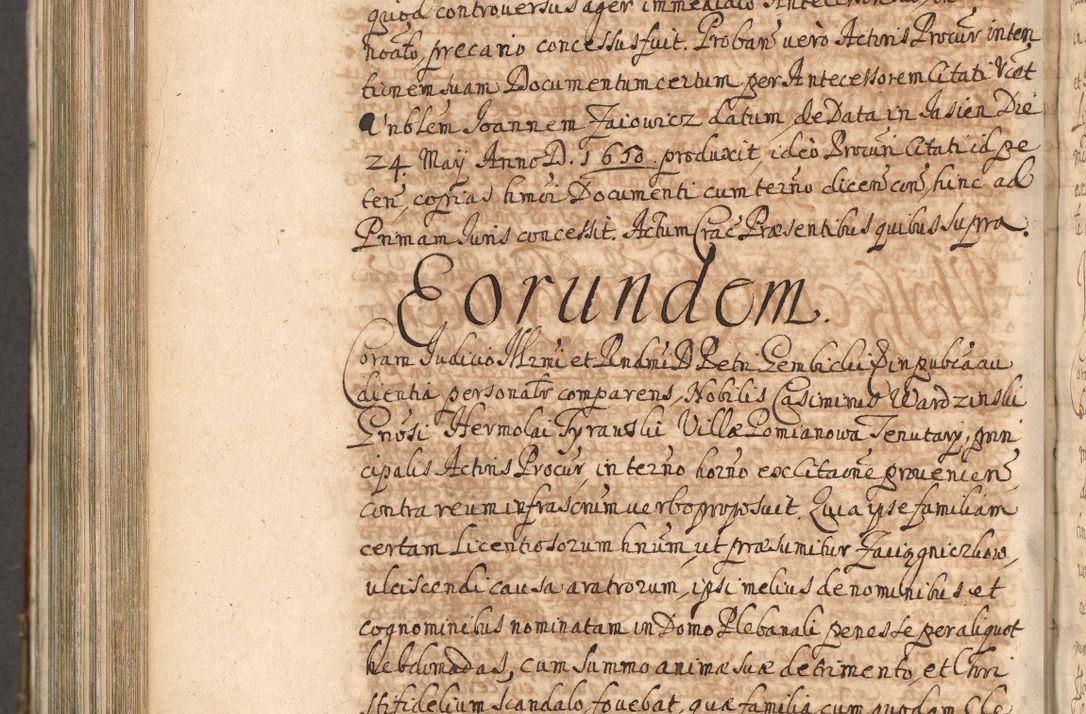 quod controversus ager immediato Antecessori
noato, precario concessus fuit. Proban vero Actoris Procur inten
tionem suam Documentum certum per Antecessorem Citati Vcet
Vnblem Joannem Zaiowicz datum, de Data in Jasien Die
24. Maij Anno D. 1650. produxit, ideo Procuri Citati id pe
ten, copias hmoi Documenti cum termo dicen con, hinc ad
Primam Juris concessit. Actum Crac Præsentibus quibus supra.
Eorundem.
Coram Judicio Illrmi et Rndmi D Petri Gembicki Ep in pubca au
dientia personalr comparens, Nobilis Casimirus Wardzinski
Gnosi Hermolai Tyranski Villæ Lomianowa Tenutarij, prin
cipalis Actoris Procur, in termo horno ex Citaone provenien
contra reum infrascrium verbo proposuit. Quia ipse familiam
certam licentiosorum hnum ut præsumitur
ulciscendi causa aratrorum, ipsi melius de nominibus et
cognominibus nominatam in Domo Plebanali penes se per aliquot
hebdomadas, cum summo animæ suæ detrimento, et Chri
stifidelium scandalo, fovebat, quæ familia cum quodam Cle